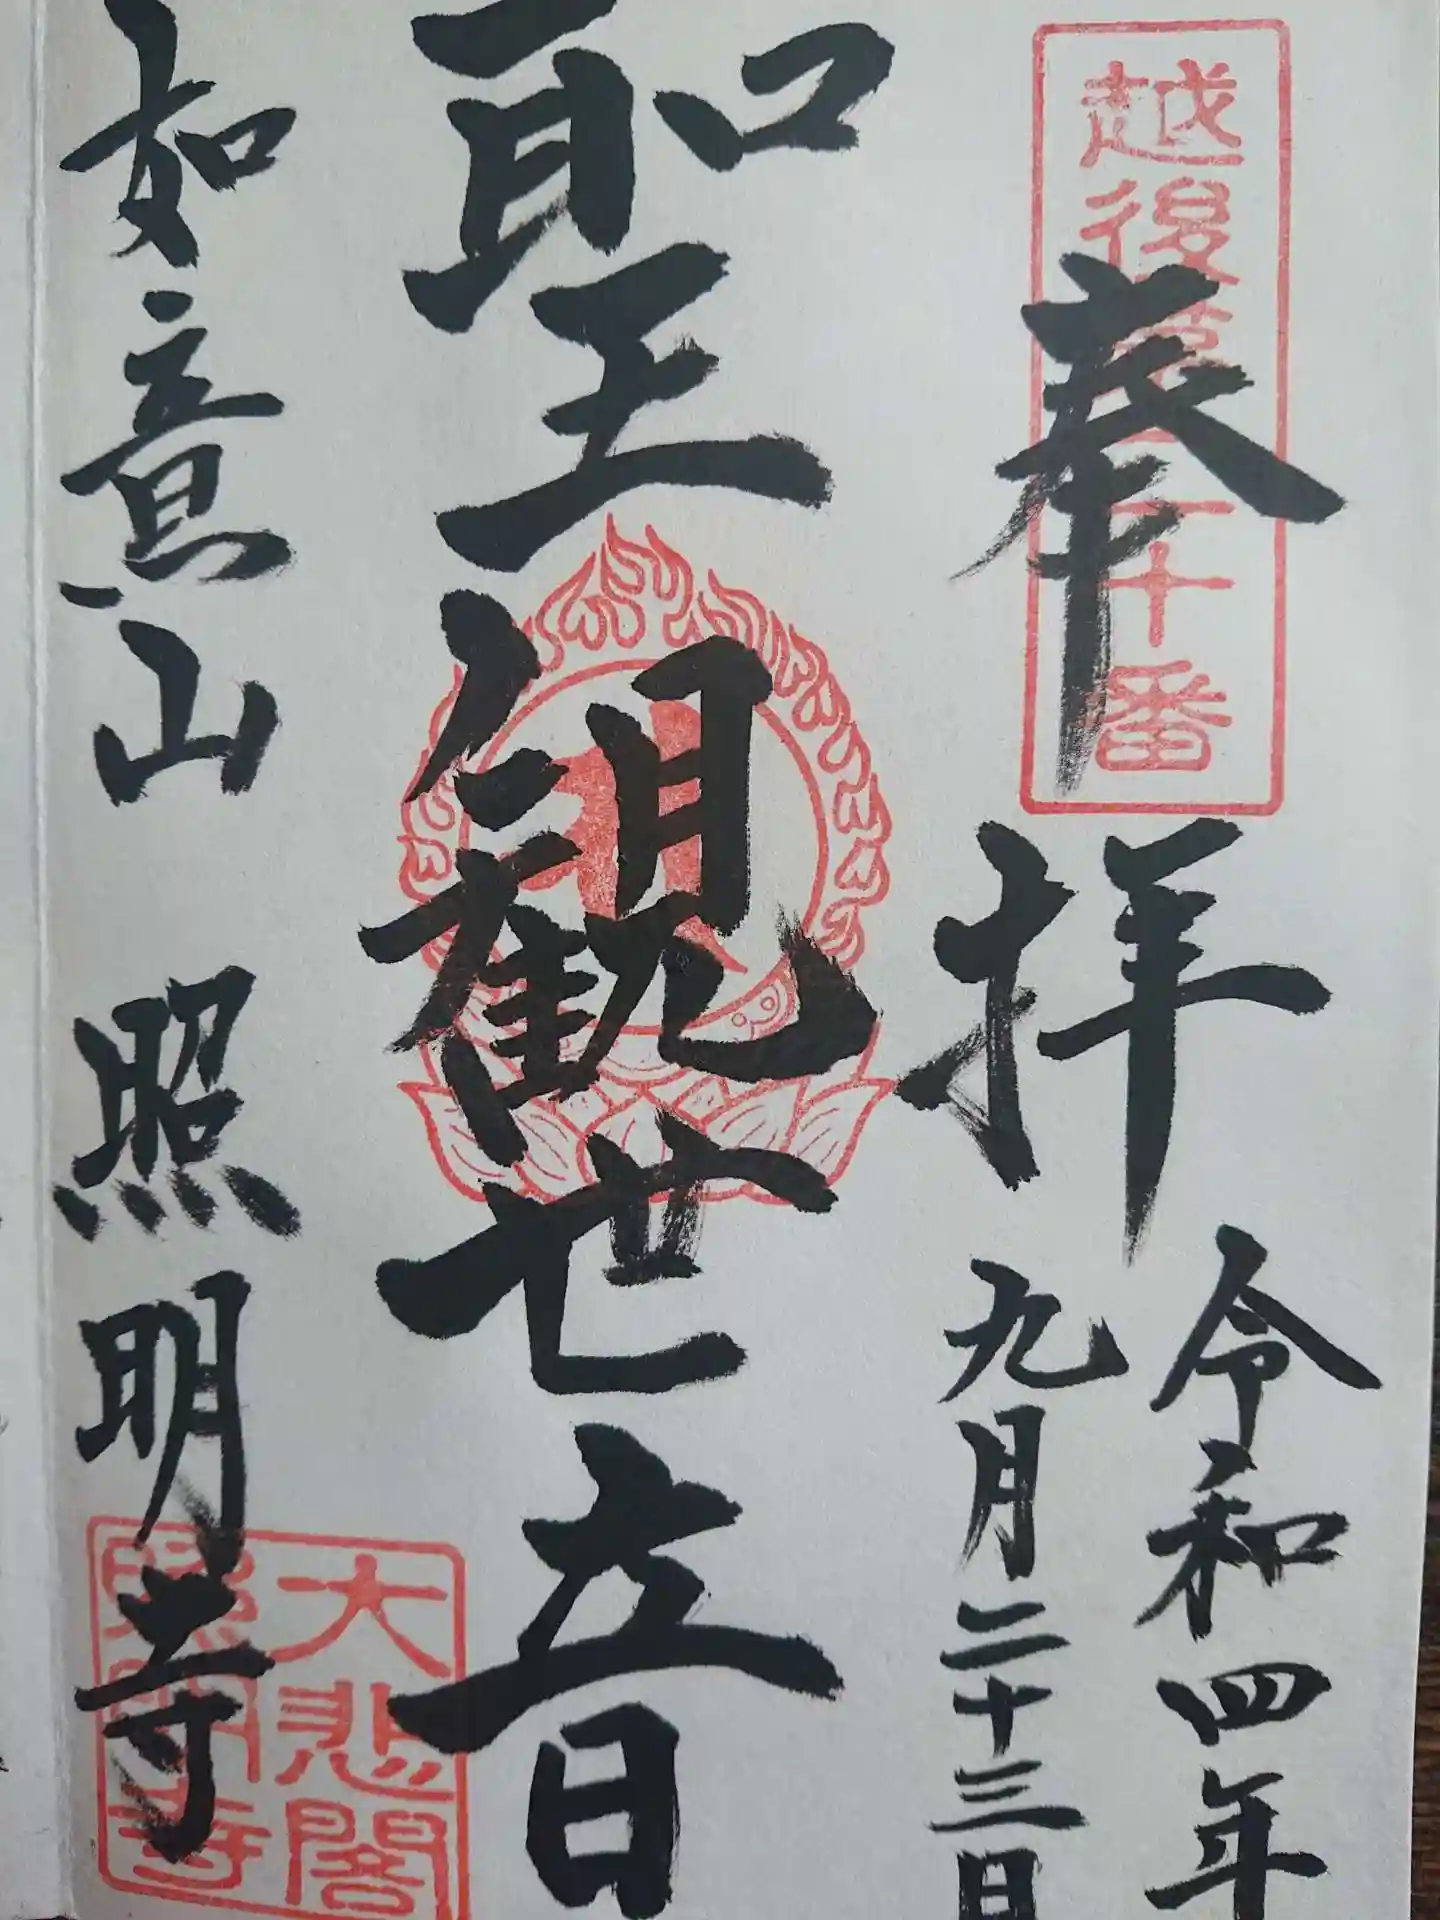 奉拝
越後第二十番
令和四年
九月二十三日
聖観世音
如意山 照明寺
大悲閣
照明寺